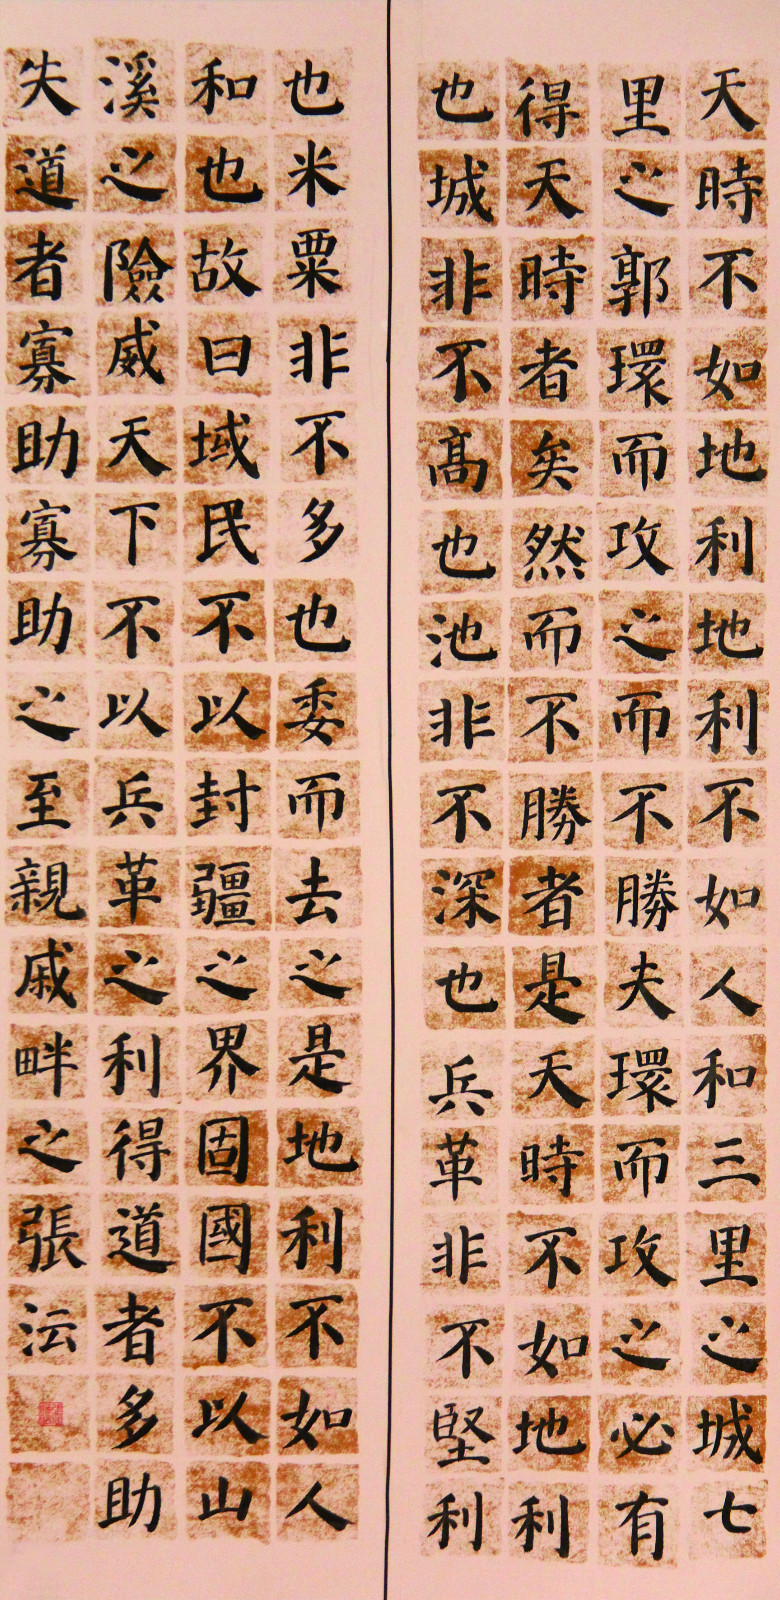 天時不如地利地利不如人和三里之城七
里之郭環而攻之而不勝夫環而攻之必有
得天時者矣然而不勝者是天時不如地利
也城非不高也池非不深也兵革非不堅利
也米粟非不多也委而去之是地利不如人
和也故曰域民不以封疆之界固國不以山
溪之險威天下不以兵革之利得道者多助
失道者寡助寡助之至親戚畔之張沄